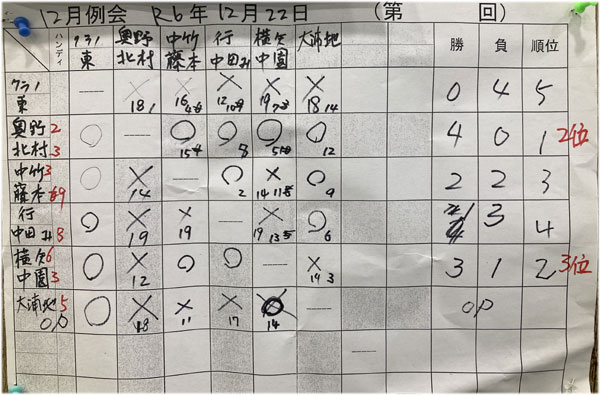 12月例会 R6年12月22日 (第 回)
ハンディ クラノ 東 奥野 北村 中竹 藤本 行 中田み 横矢 中園 大浦地 勝 負 順位
クラノ 東 — × 181 × 16 × 12 × 19 × 18 14 0 4 5
奥野 2 北村 3 ○ — ○ 15 ○ 8 ○ 5 ○ 12 4 0 1 2位
中竹 3 藤本 9 ○ × 14 — ○ 2 × 14 ○ 9 2 2 3
行 中田み 8 ○ × 19 × 19 — × 19 ○ 6 3 4
横矢 6 中園 3 ○ × 12 ○ ○ — × 19 3 3 1 2 3位
大浦地 5 OP ○ × 18 × 11 × 17 14 — OP